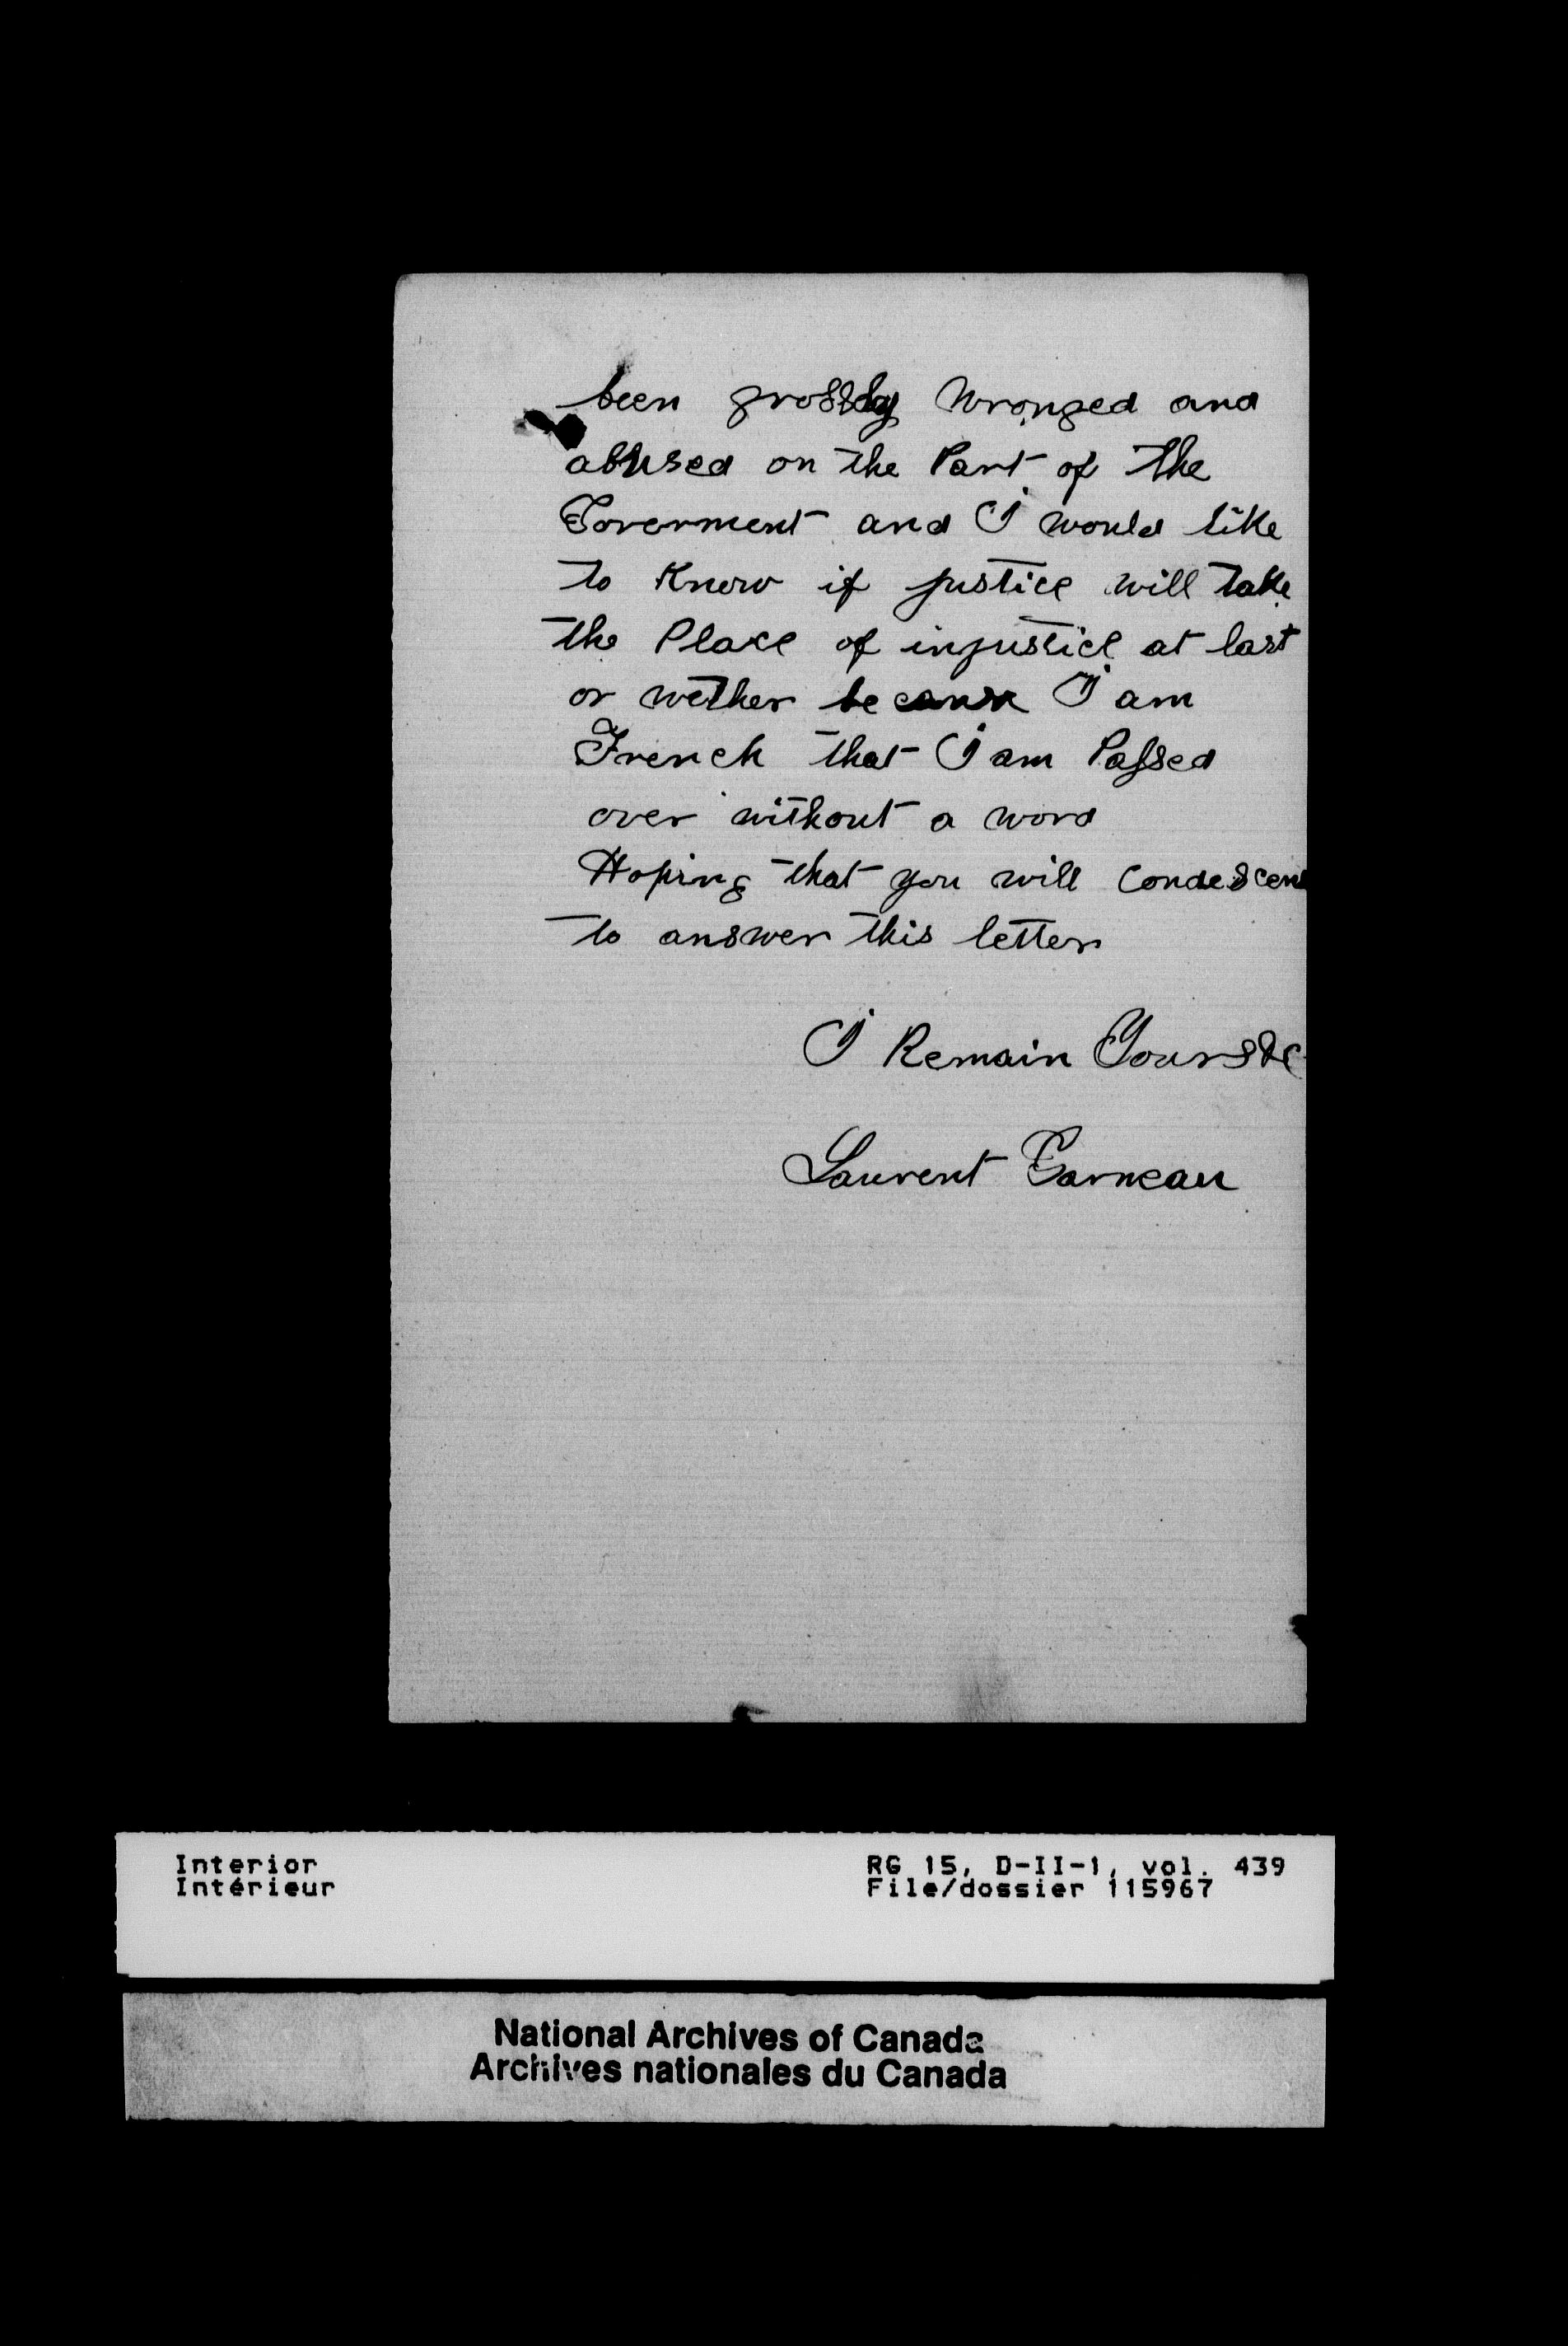 been grossly wronged and
abused on the Part of the
Goverment and I would like
to Know if justice will take
the Place of injustice at last
or wether because I am
French that I am Passed
over without a word
Hoping that you will Condescen
to answer this letter
I Remain Yours &c
Laurent Garneau
Interior
Intérieur
RG 15, D-II-1, vol. 439
File/dossier 115967
National Archives of Canada
Archives nationales du Canada